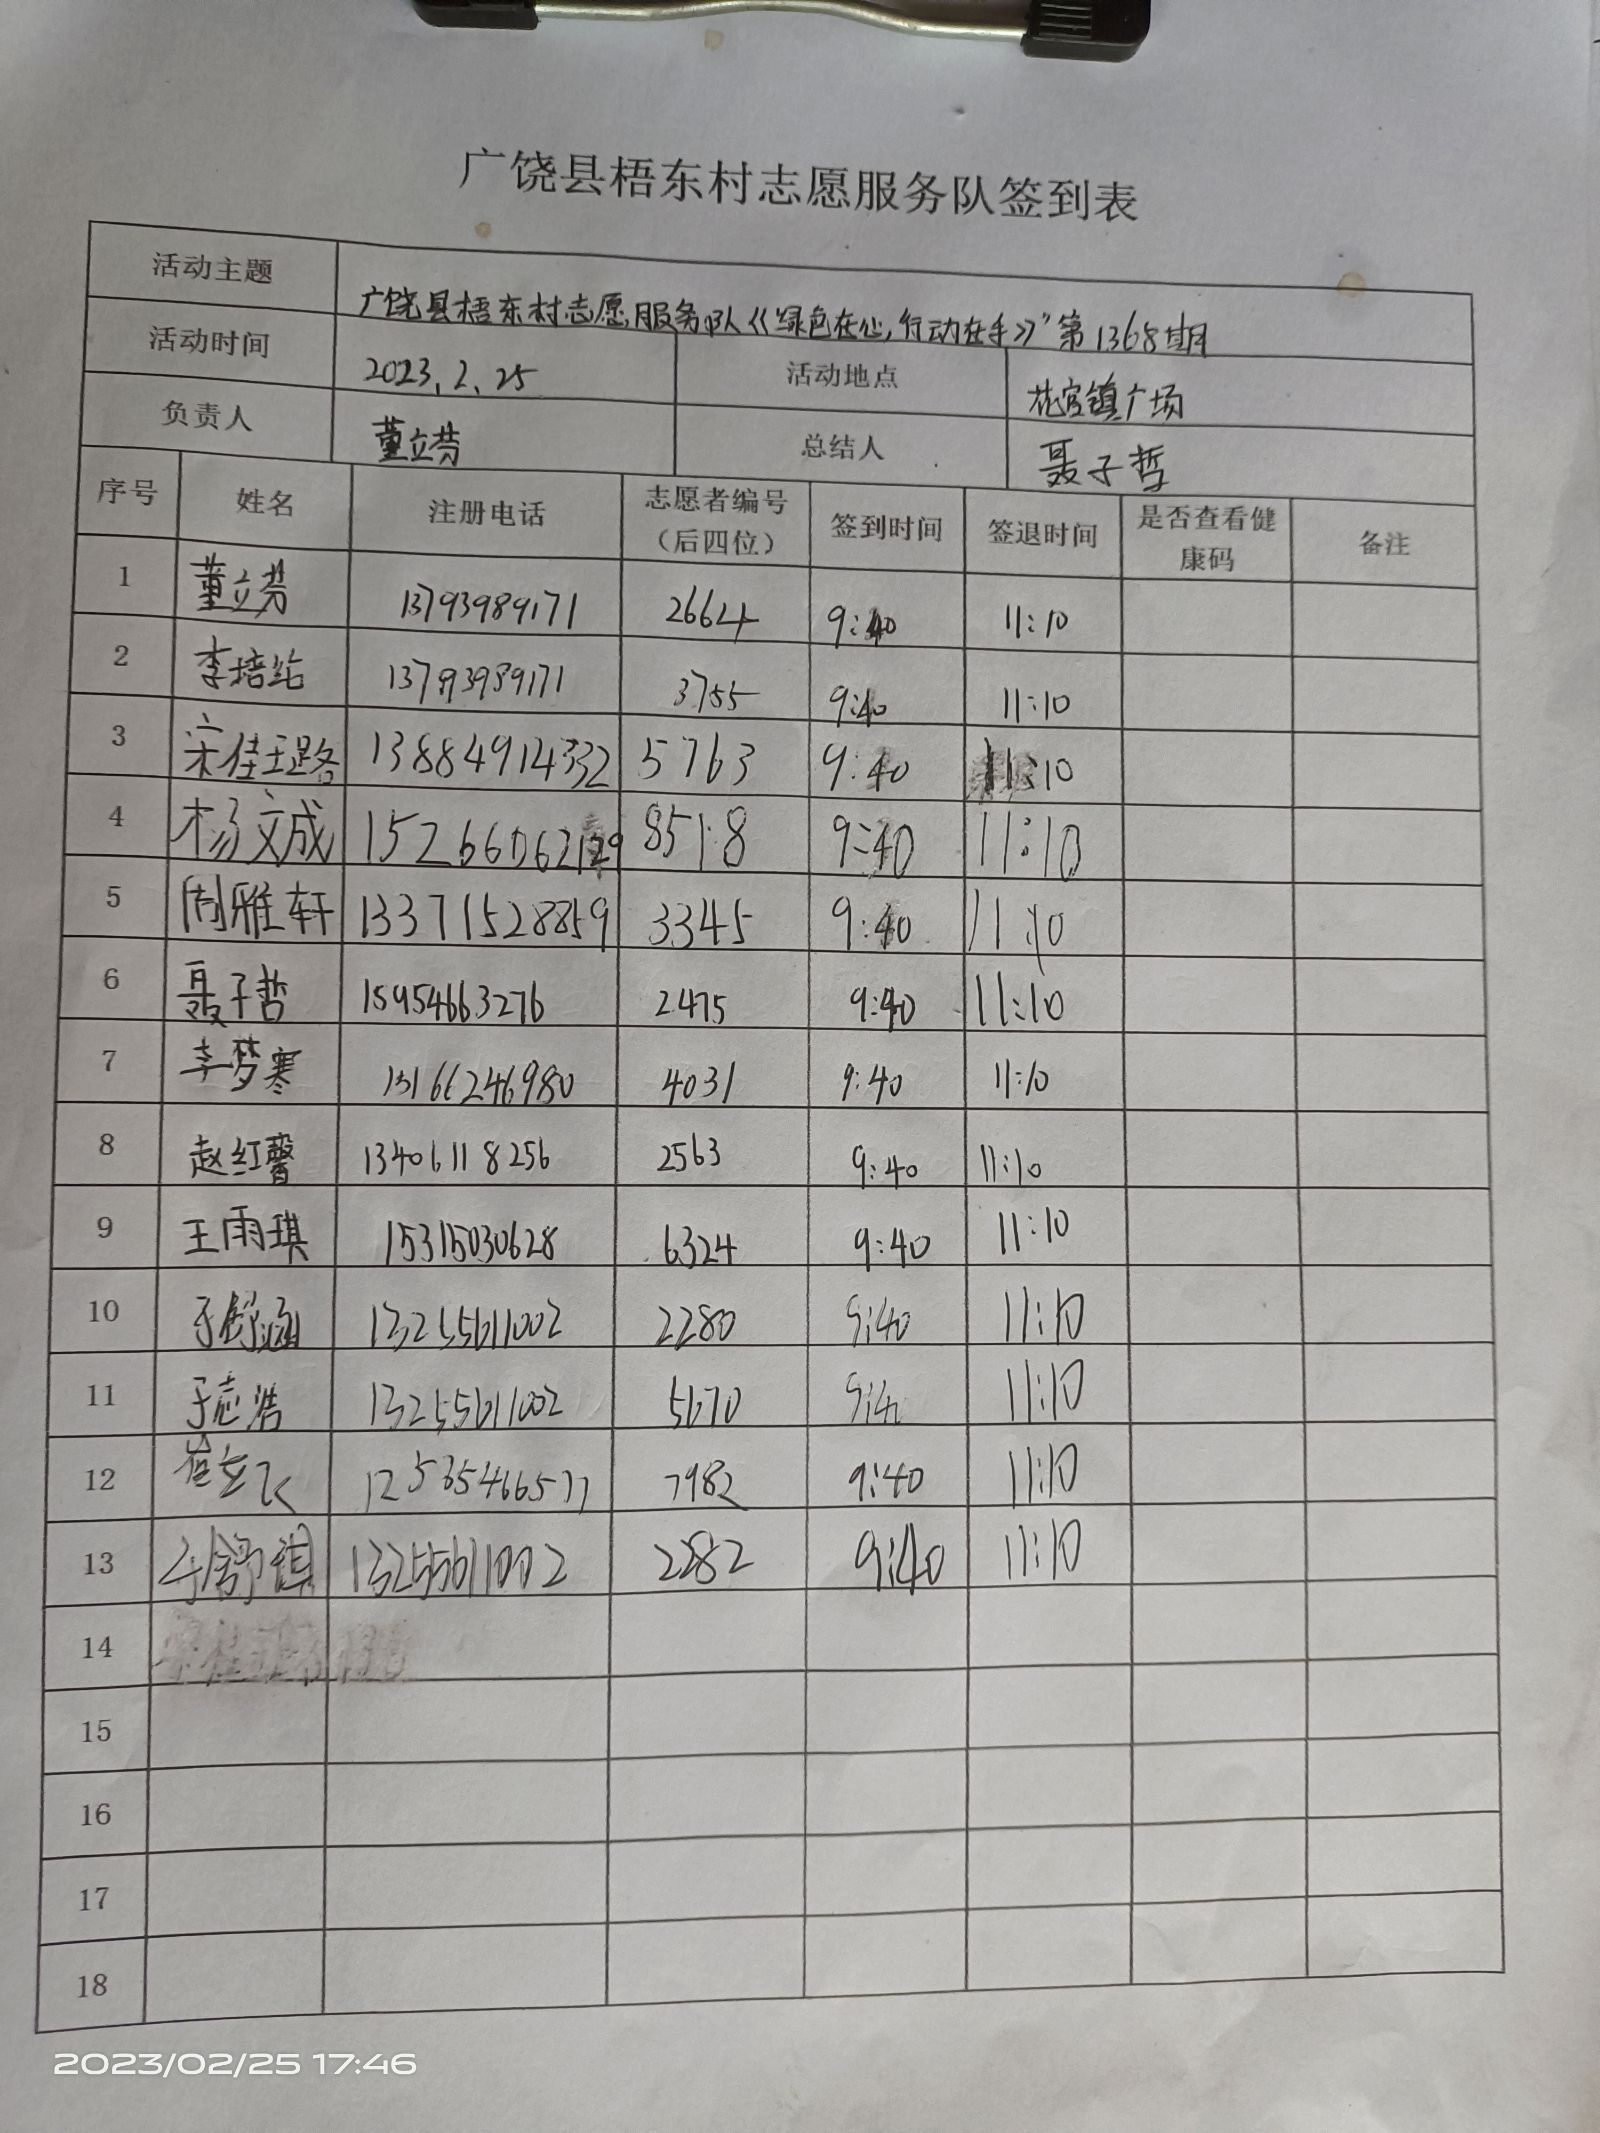 广饶县梧东村志愿服务队签到表
活动主题 广饶县梧东村志愿服务队《《绿色在心,行动在手》》"第1368期
活动时间 2023.2.25 活动地点 花官镇广场
负责人 董立芬 总结人 聂子哲
序号 姓名 注册电话 志愿者编号（后四位） 签到时间 签退时间 是否查看健康码 备注
1 董立芬 13793989171 2664 9:40 11:10
2 李培 13793989171 3755 9:40 11:10
3 宋佳璐 13884914332 5763 9:40 11:10
4 杨文成 8518 9:40 11:10
5 周雅轩 13371528859 3345 9:40 11:10
6 聂子哲 15954663276 2475 9:40 11:10
7 李梦寒 13166246980 4031 9:40 11:10
8 赵红馨 13406118256 2563 9:40 11:10
9 王雨琪 15315030628 6324 9:40 11:10
10 于舒涵 13255611002 2280 9:40 11:10
11 于志浩 13255611002 5670 11:10
12 崔 7982 9:40 11:10
13 于舒琪 13255611002 2282 9:40 11:10
14
15
16
17
18
2023/02/25 17:46